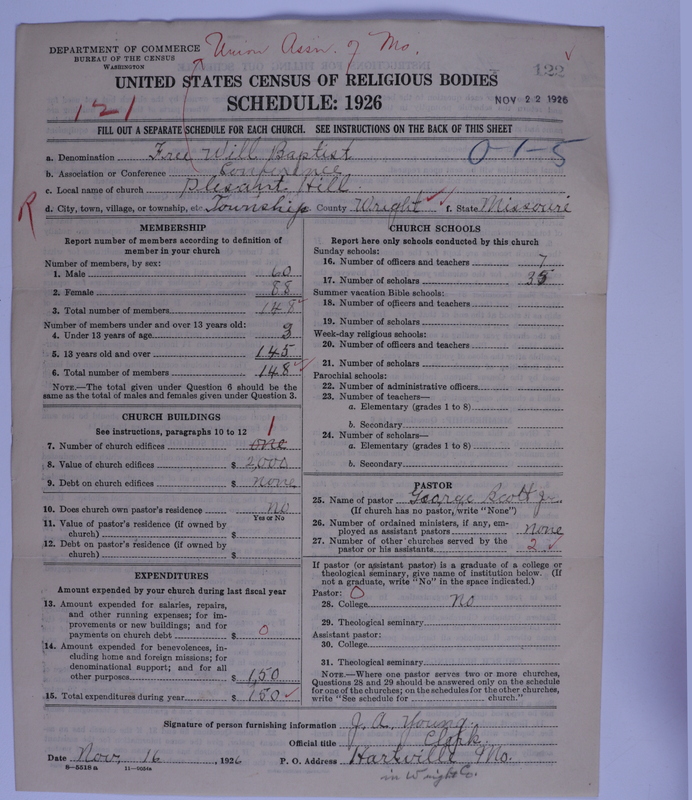 DEPARTMENT OF COMMERCE
BUREAU OF THE CENSUS
WASHINGTON
Union Assn. of Mo.
122
UNITED STATES CENSUS OF RELIGIOUS BODIES
SCHEDULE: 1926
NOV 22 1926
121
FILL OUT A SEPARATE SCHEDULE FOR EACH CHURCH. SEE INSTRUCTIONS ON THE BACK OF THIS SHEET
a. Denomination Free Will Baptist
0-1-5
b. Association or Conference Conference
c. Local name of church Plesant Hill
R
d. City, town, village, or township, etc. Township County Wright f. State Missouri
MEMBERSHIP
Report number of members according to definition of
member in your church
Number of members, by sex:
1. Male 60
2. Female 88
3. Total number of members 148
Number of members under and over 13 years old:
4. Under 13 years of age 3
5. 13 years old and over 145
6. Total number of members 148
NOTE.—The total given under Question 6 should be the
same as the total of males and females given under Question 3.
CHURCH BUILDINGS
See instructions, paragraphs 10 to 12
1
7. Number of church edifices one
8. Value of church edifices $ 2,000
9. Debt on church edifices $ none
10. Does church own pastor's residence no
Yes or No
11. Value of pastor's residence (if owned by
church) $
12. Debt on pastor's residence (if owned by
church) $
EXPENDITURES
Amount expended by your church during last fiscal year
13. Amount expended for salaries, repairs,
and other running expenses; for im-
provements or new buildings; and for
payments on church debt $ 0
14. Amount expended for benevolences, in-
cluding home and foreign missions; for
denominational support; and for all
other purposes $ 1,50
15. Total expenditures during year $ 150
CHURCH SCHOOLS
Report here only schools conducted by this church
Sunday schools:
16. Number of officers and teachers 7
17. Number of scholars 35
Summer vacation Bible schools:
18. Number of officers and teachers
19. Number of scholars
Week-day religious schools:
20. Number of officers and teachers
21. Number of scholars
Parochial schools:
22. Number of administrative officers
23. Number of teachers—
a. Elementary (grades 1 to 8)
b. Secondary
24. Number of scholars—
a. Elementary (grades 1 to 8)
b. Secondary
PASTOR
25. Name of pastor George Scott Jr.
(If church has no pastor, write "None")
26. Number of ordained ministers, if any, em-
ployed as assistant pastors none
27. Number of other churches served by the
pastor or his assistants 2
If pastor (or assistant pastor) is a graduate of a college or
theological seminary, give name of institution below. (If
not a graduate, write "No" in the space indicated.)
Pastor: 0
28. College no
29. Theological seminary
Assistant pastor:
30. College
31. Theological seminary
NOTE.—Where one pastor serves two or more churches,
Questions 28 and 29 should be answered only on the schedule
for one of the churches; on the schedules for the other churches,
write "See schedule for church."
Signature of person furnishing information J. A. Young
Official title Clerk
Date Nov, 16, 1926 P. O. Address Hartville Mo.
8—5518 a
in Wright Co.